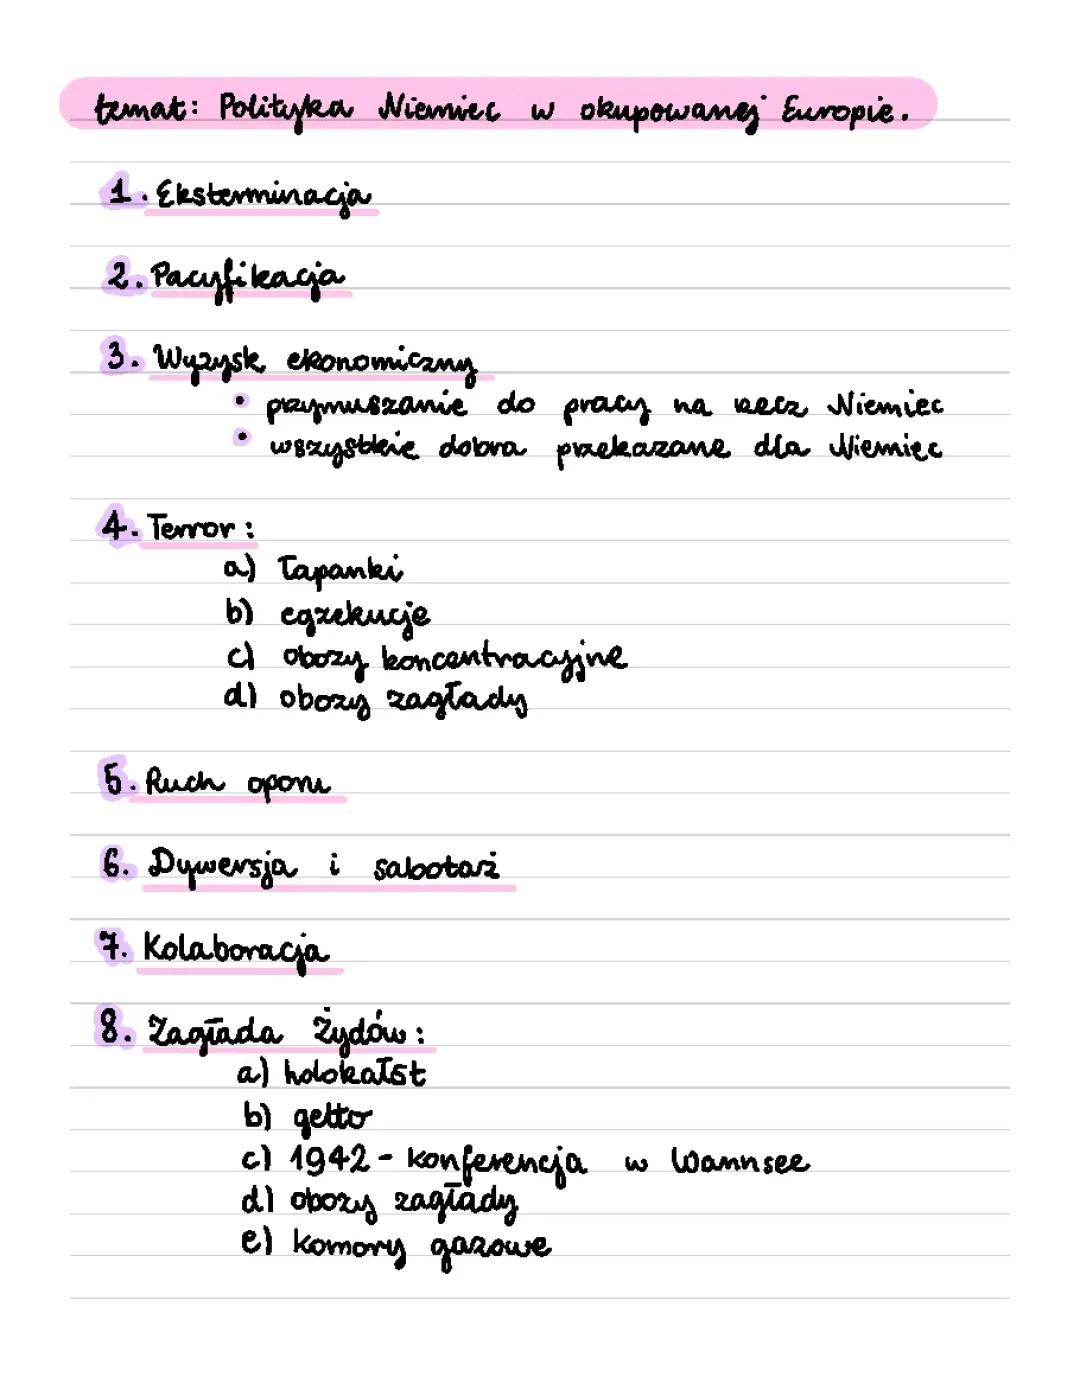 temat: Polityka Niemiec w okupowanej Europie.
1. Eksterminacja
2. Pacyfikacja
3. Wyzysk ekonomiczny
• przymuszanie do pracy na rzecz Niemiec
• wszystkie dobra przekazane dla Niemiec
4. Terror:
a) łapanki
b) egzekucje
c) obozy koncentracyjne
d) obozy zagłady
5. Ruch oporu
6. Dywersja i sabotaż
7. Kolaboracja
8. Zagłada Żydów:
a) holokałst
b) getto
c) 1942 - konferencja w Wannsee
d) obozy zagłady
e) komory gazowe